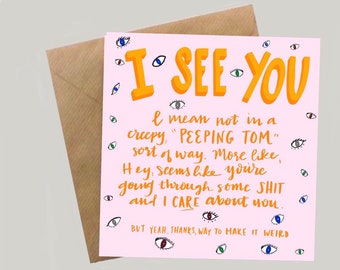 I SEE YOU
I mean not in a
creepy, "PEEPING TOM"
sort of way. More like,
Hey, seems like you're
going through some SHIT
and I CARE about you.
BUT YEAH, THANKS, WAY TO MAKE IT WEIRD